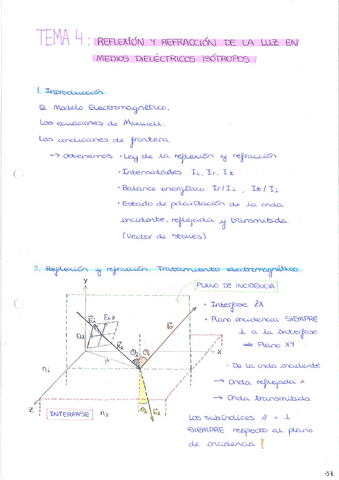 TEMA 4: REFLEXIÓN Y REFRACCIÓN DE LA LUZ EN
MEDIOS DIELÉCTRICOS ISÓTROPOS
1. Introducción
El Modelo Electromagnético.
Las ecuaciones de Maxwell.
Las condiciones de frontera.
→ obtenemos · Ley de la reflexión y refracción
· Intensidades Ii, Ir, It
· Balance energético Ir/Ii, It/Ii
· Estado de polarización de la onda
incidente, reflejada y transmitida
(Vector de Stokes)
2. Reflexión y refracción. Tratamiento electromagnético
PLANO DE INCIDENCIA
y
· Interfase ZX
· Plano incidencia SIEMPRE
⊥ a la interfase
⇒ Plano XY
x
· De la onda incidente
→ Onda reflejada
→ Onda transmitida
ni
z
INTERFASE
Los subíndices // y ⊥
SIEMPRE respecto al plano
de incidencia !